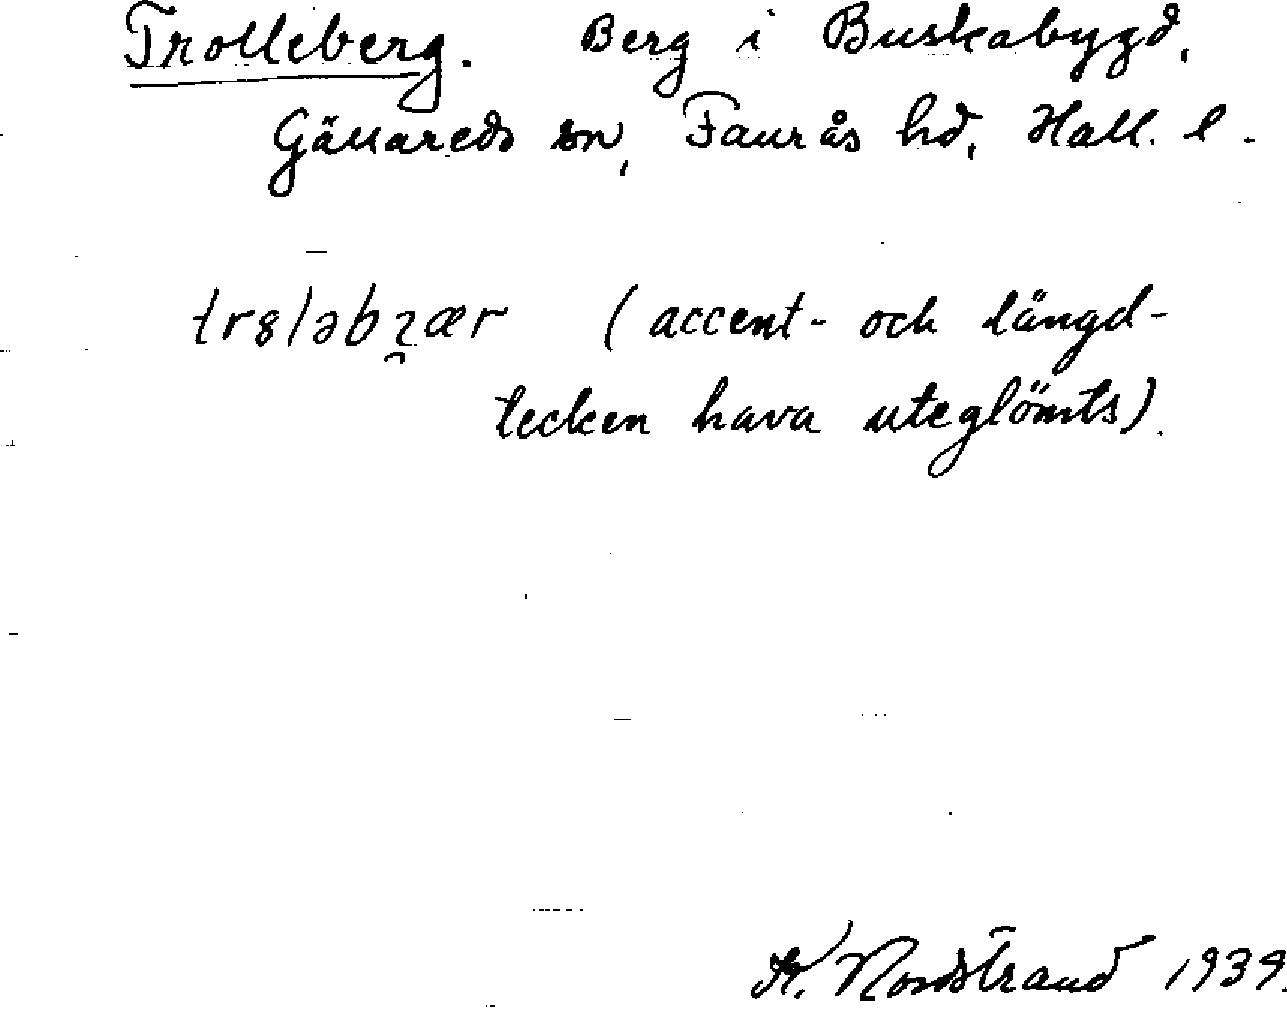 Trolleberg. Berg i Buskabygd,
Gällareds sn, Faurås hd, Hall. l.
tr8ləbɿær (accent- och längd-
tecken hava uteglömts).
K. Nordstrand 1939.